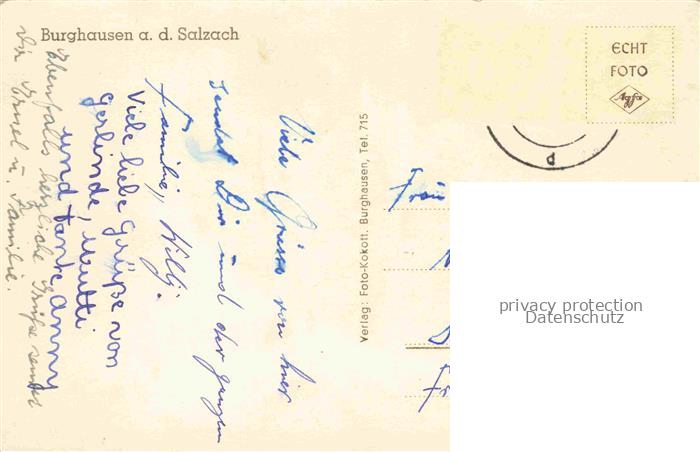 Burghausen a. d. Salzach
ECHT
FOTO
Agfa
Viele Grüsse von hier
sendet Dir und der ganzen
Familie, Willy.
Viele liebe Grüße von
Gerlinde, Mutti
und Tante Anny
Ebenfalls herzliche Grüße sendet
Dir u. Familie.
Verlag: Foto-Kokott, Burghausen, Tel. 715
privacy protection
Datenschutz